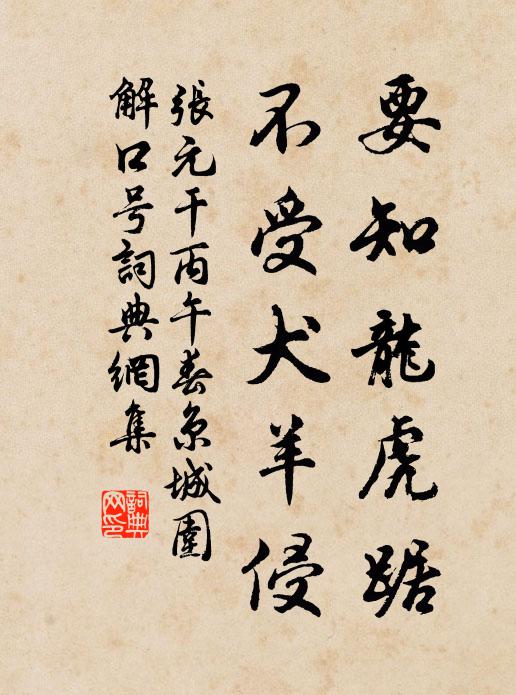 要知龍虎踞
不受犬羊侵
張元干丙午春京城圍
解口号詞典網集
詞典
网印